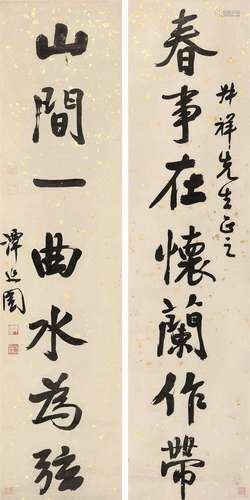 春事在懷蘭作帶
祥先生正之
山間一曲水為弦
譚延闓